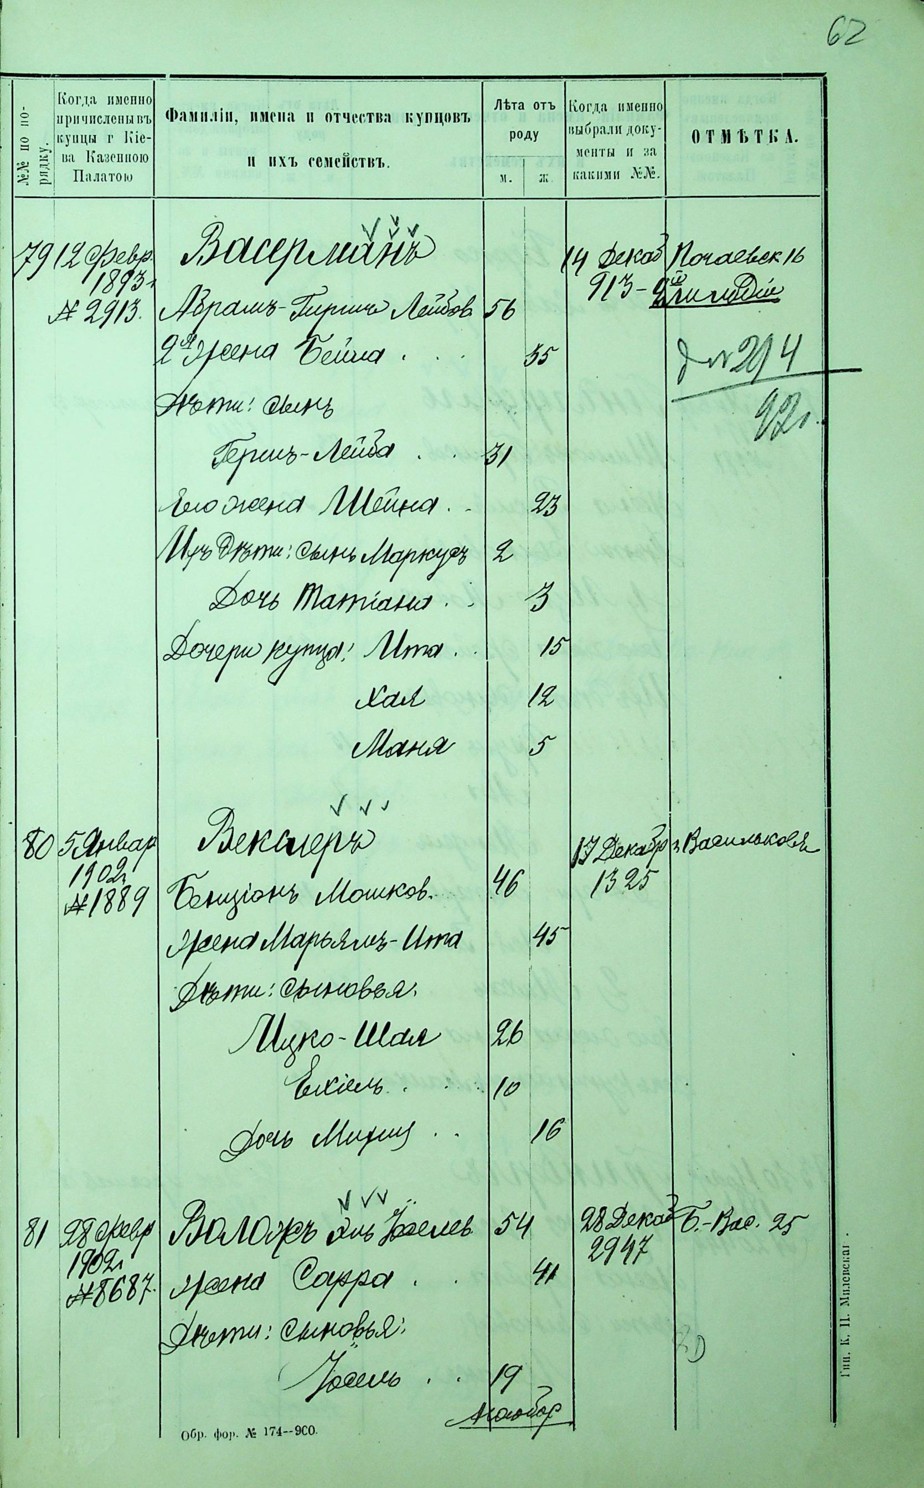 62
№№ по по-
рядку.
Когда именно
причислены въ
купцы г Кіе-
ва Казенною
Палатою
Фамиліи, имена и отчества купцовъ
и ихъ семействъ.
Лѣта отъ
роду
м.
ж
Когда именно
выбрали доку-
менты и за
какими №№.
ОТМѢТКА.
79 12 Февр Васерманъ 14 Декаб Почаевск 16
1893 г 913 - 2й гильдіи
№ 2913. Абрамъ-Гиршъ Лейбов 56
2я Жена Бейла . . . 35
№ 214
92 г.
Дѣти: сынъ
Гершъ-Лейба . . 31
Его жена Шейна . . 23
Ихъ дѣти: сынъ Маркусъ 2
Дочь Татіана . . 3
Дочери купца: Ита . . 15
Хая 12
Маня 5
80 5 Январ Векслеръ 17 Декабр г. Васильковъ
1902 г 1325
№ 1889 Бенціонъ Мошков. 46
Жена Марьямъ-Ита 45
Дѣти: сыновья:
Ицко-Шая 26
Ехіель . . 10
Дочь . . 16
81 28 Февр Воложъ Іоселев 54 28 Декаб Б.-Вас. 25
1902 г 2947
№ 8687. Жена Сарра . . 41
Дѣти: сыновья:
Іосель . . 19
Обр. фор. № 174--900.
Тип. К. П. Милевскаг.